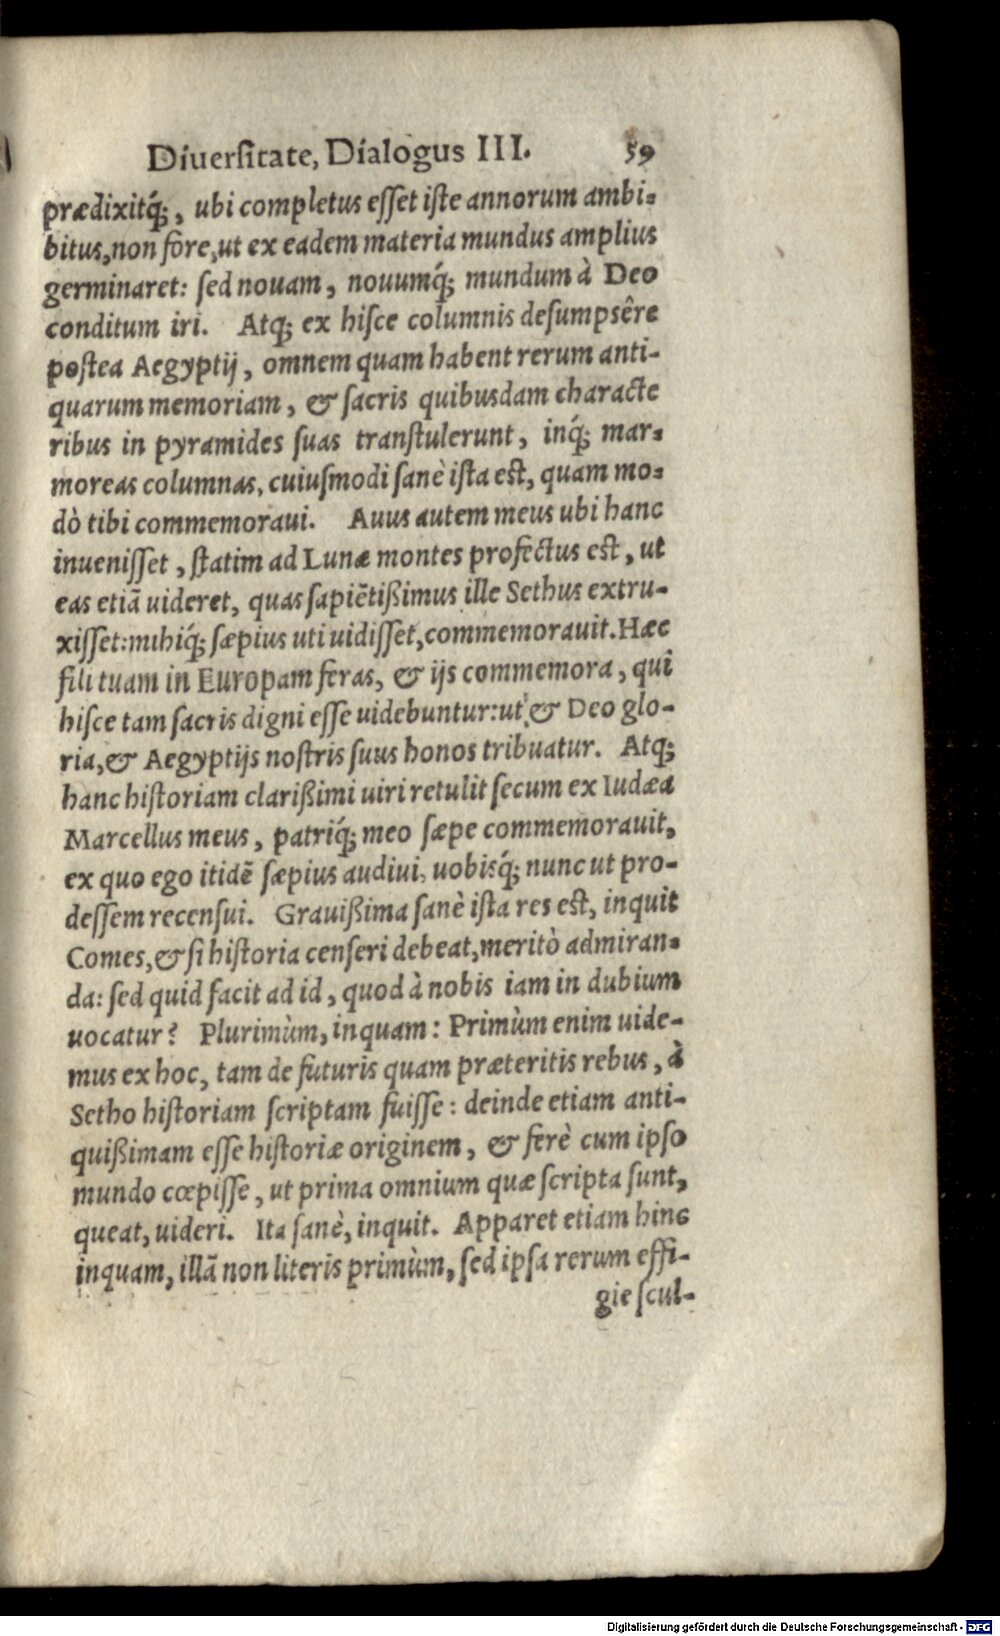 Diuersitate, Dialogus III. 59
prædixitq́;, ubi completus esset iste annorum ambi-
bitus, non fore, ut ex eadem materia mundus amplius
germinaret: sed nouam, nouumq́; mundum à Deo
conditum iri. Atq; ex hisce columnis desumpsêre
postea Aegyptij, omnem quam habent rerum anti-
quarum memoriam, & sacris quibusdam characte
ribus in pyramides suas transtulerunt, inq́; mar-
moreas columnas, cuiusmodi sanè ista est, quam mo-
dò tibi commemoraui. Auus autem meus ubi hanc
inuenisset, statim ad Lunæ montes profectus est, ut
eas etiã uideret, quas sapiẽtißimus ille Sethus extru-
xisset: mihiq́; sæpius uti uidisset, commemorauit. Hæc
fili tuam in Europam feras, & ijs commemora, qui
hisce tam sacris digni esse uidebuntur: ut & Deo glo-
ria, & Aegyptijs nostris suus honos tribuatur. Atq;
hanc historiam clarißimi uiri retulit secum ex Iudæa
Marcellus meus, patriq́; meo sæpe commemorauit,
ex quo ego itidẽ sæpius audiui, uobisq́; nunc ut pro-
dessem recensui. Grauißima sanè ista res est, inquit
Comes, & si historia censeri debeat, meritò admiran-
da: sed quid facit ad id, quod à nobis iam in dubium
uocatur? Plurimùm, inquam: Primùm enim uide-
mus ex hoc, tam de futuris quam præteritis rebus, à
Setho historiam scriptam fuisse: deinde etiam anti-
quißimam esse historiæ originem, & ferè cum ipso
mundo cœpisse, ut prima omnium quæ scripta sunt,
queat, uideri. Ita sanè, inquit. Apparet etiam hinc
inquam, illã non literis primùm, sed ipsa rerum effi-
gie scul-
Digitalisierung gefördert durch die Deutsche Forschungsgemeinschaft - DFG